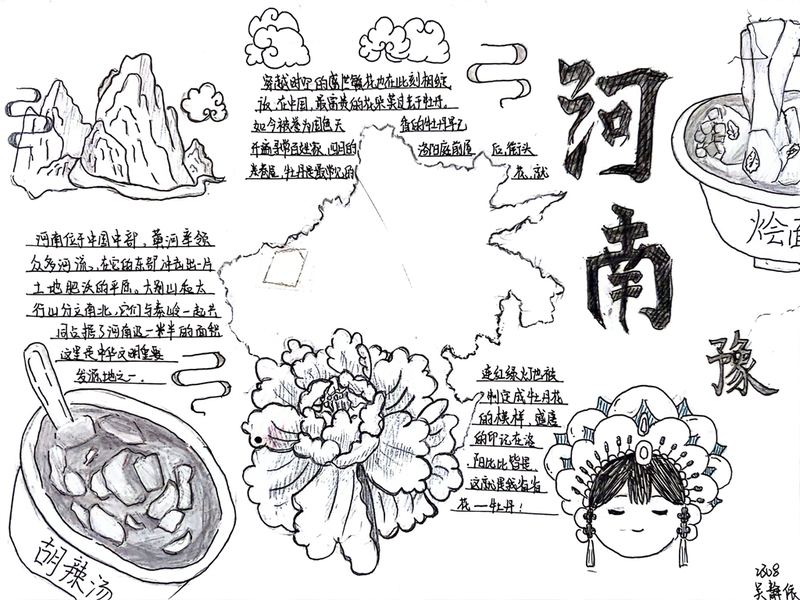 穿越时空的盛世繁花也在此刻相绽
放，在中国，最富贵的花朵莫过于牡丹，
如今被誉为国色天香的牡丹早已
开遍寻常百姓家，四月的洛阳庭前屋后，街头
巷尾，牡丹是最常见的花，就
连红绿灯也被
制定成牡丹花
的模样，盛唐
的印记在洛
阳比比皆是，
这就是我省省
花——牡丹！
河南
烩面
豫
河南位于中国中部，黄河率领
众多河流，在它的东部冲击出一片
土地肥沃的平原。大别山和太
行山分立南北，它们与秦岭一起共
同占据了河南近一半的面积
这里是中华文明重要
发源地之一.
胡辣汤
2308